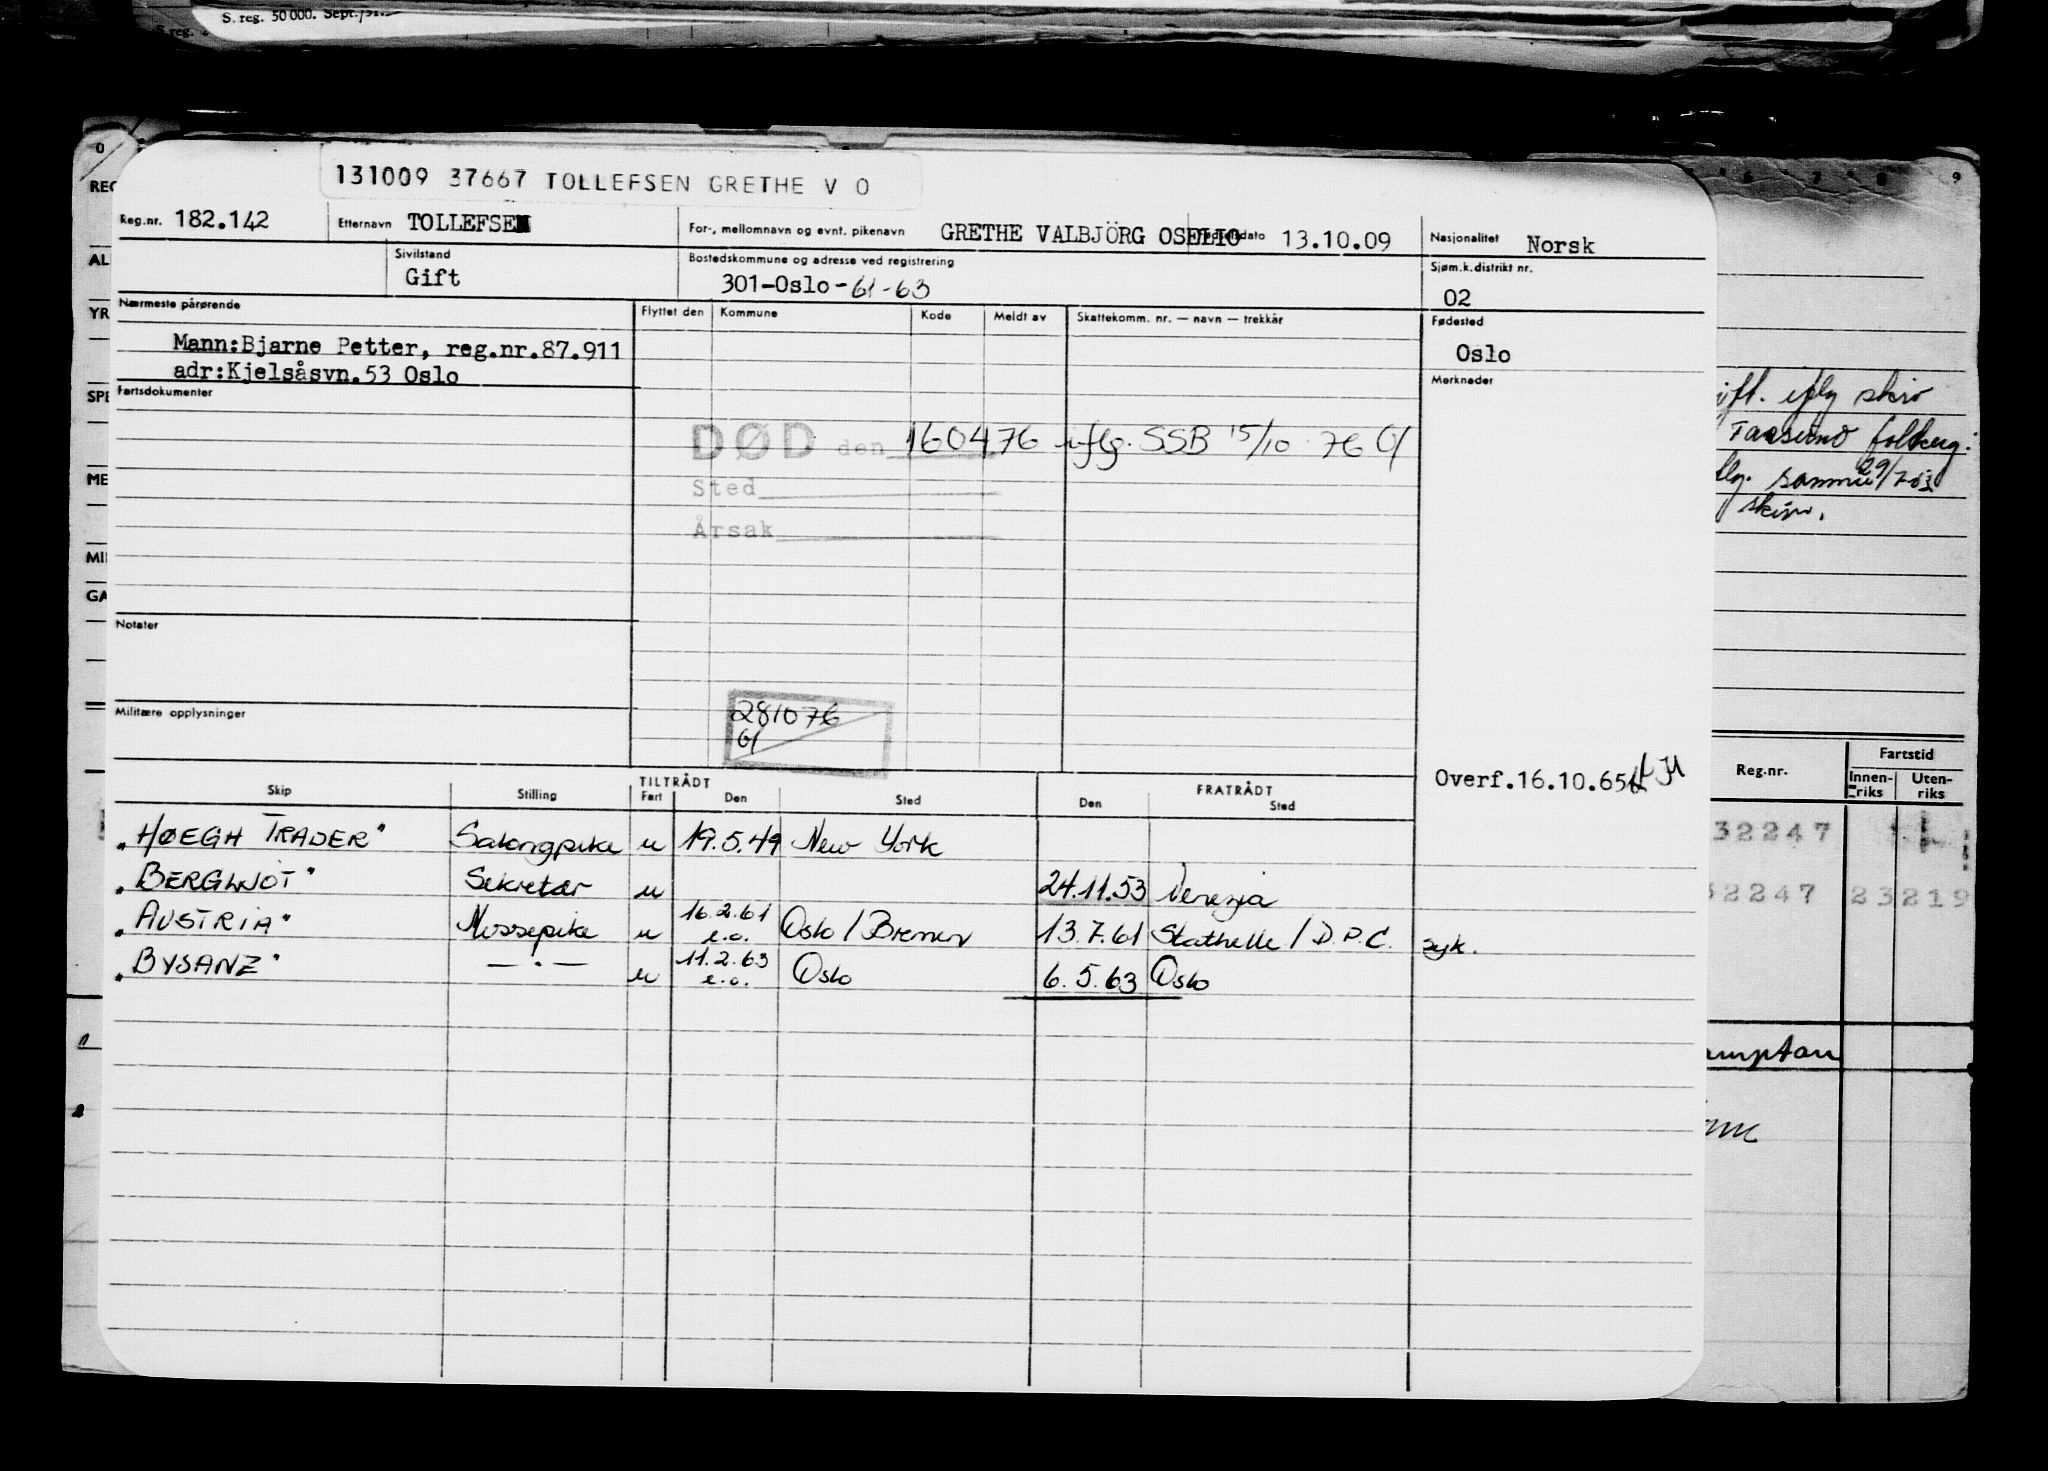 S. reg. 50 000. Sept.
S reg.
131009 37667 TOLLEFSEN GRETHE V O
Reg.nr. 182.142 Etternavn TOLLEFSEN For-, mellomnavn og evnt. pikenavn GRETHE VALBJÖRG OSELIO dato 13.10.09 Nasjonalitet Norsk
Sivilstand Gift Bostedskommune og adresse ved registrering 301-Oslo-61-63 Sjøm.k.distrikt nr. 02
Nærmeste pårørende Flyttet den Kommune Kode Meldt av Skattekomm. nr. — navn — trekkår Fødested
Mann:Bjarne Petter, reg.nr.87.911 Oslo
adr:Kjelsåsvn.53 Oslo
Fartsdokumenter Merknader
DØD den 160476 iflg. SSB 15/10-76 G/
Sted
Årsak
Notater
Militære opplysninger
281076
G/
Overf.16.10.65
Skip Stilling TILTRÅDT Fart Den Sted FRATRÅDT Den Sted
"HØEGH TRADER" Salongpike u 19.5.49 New York
"BERGLJOT" Sekretær u 24.11.53 Venezia
"AUSTRIA" Messepike u 16.2.61 e.o. Oslo / Bremen 13.7.61 Stathelle / D.P.C. syk.
"BYSANZ" — · — u 11.2.63 e.o. Oslo 6.5.63 Oslo
0
REG
AL
YR
SPE
ME
MI
GA
6 7 8 9
ifl. iflg skriv
folkereg.
samme 29/7-
skriv.
Reg.nr. Fartstid
Innenriks Utenriks
32247
32247 23219
ampton